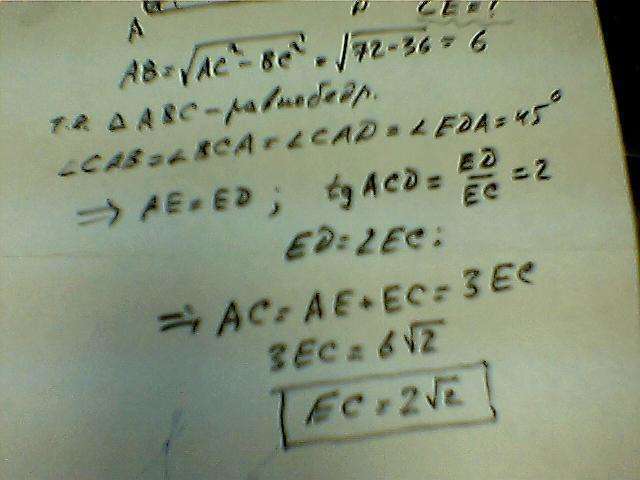 A D CE = ?
AB = √AC² - BC² = √72-36 = 6
т.е. △ ABC - равнобедр.
∠CAB = ∠BCA = ∠CAD = ∠EDA = 45°
⇒ AE = ED ; tg ACD = ED/EC = 2
ED = 2EC ;
⇒ AC = AE + EC = 3EC
3EC = 6√2
EC = 2√2